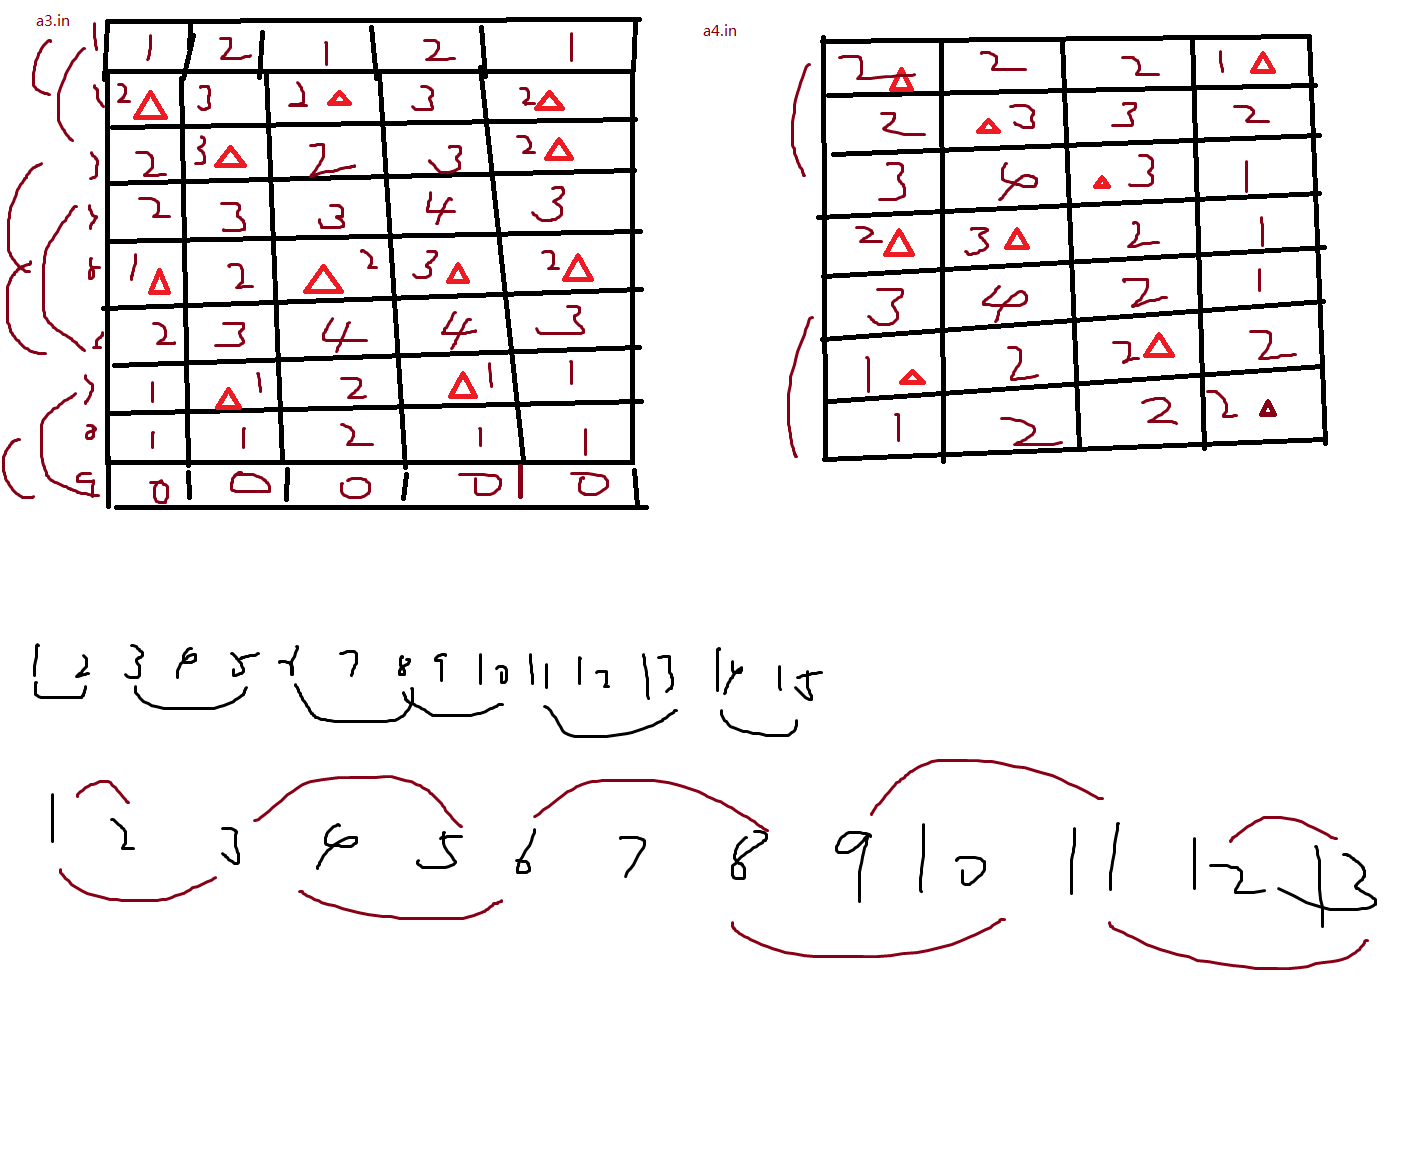 a3.in
1 2 1 2 1
2 3 2 3 2
3 2 3 2 3 2
2 3 3 4 3
1 2 2 3 2
2 3 4 4 3
1 1 2 1 1
8 1 1 2 1 1
9 0 0 0 0 0
a4.in
2 2 2 1
2 3 3 2
3 4 3 1
2 3 2 1
3 4 2 1
1 2 2 2
1 2 2 2
1 2 3 4 5 6 7 8 9 10 11 12 13 14 15
1 2 3 4 5 6 7 8 9 10 11 12 13